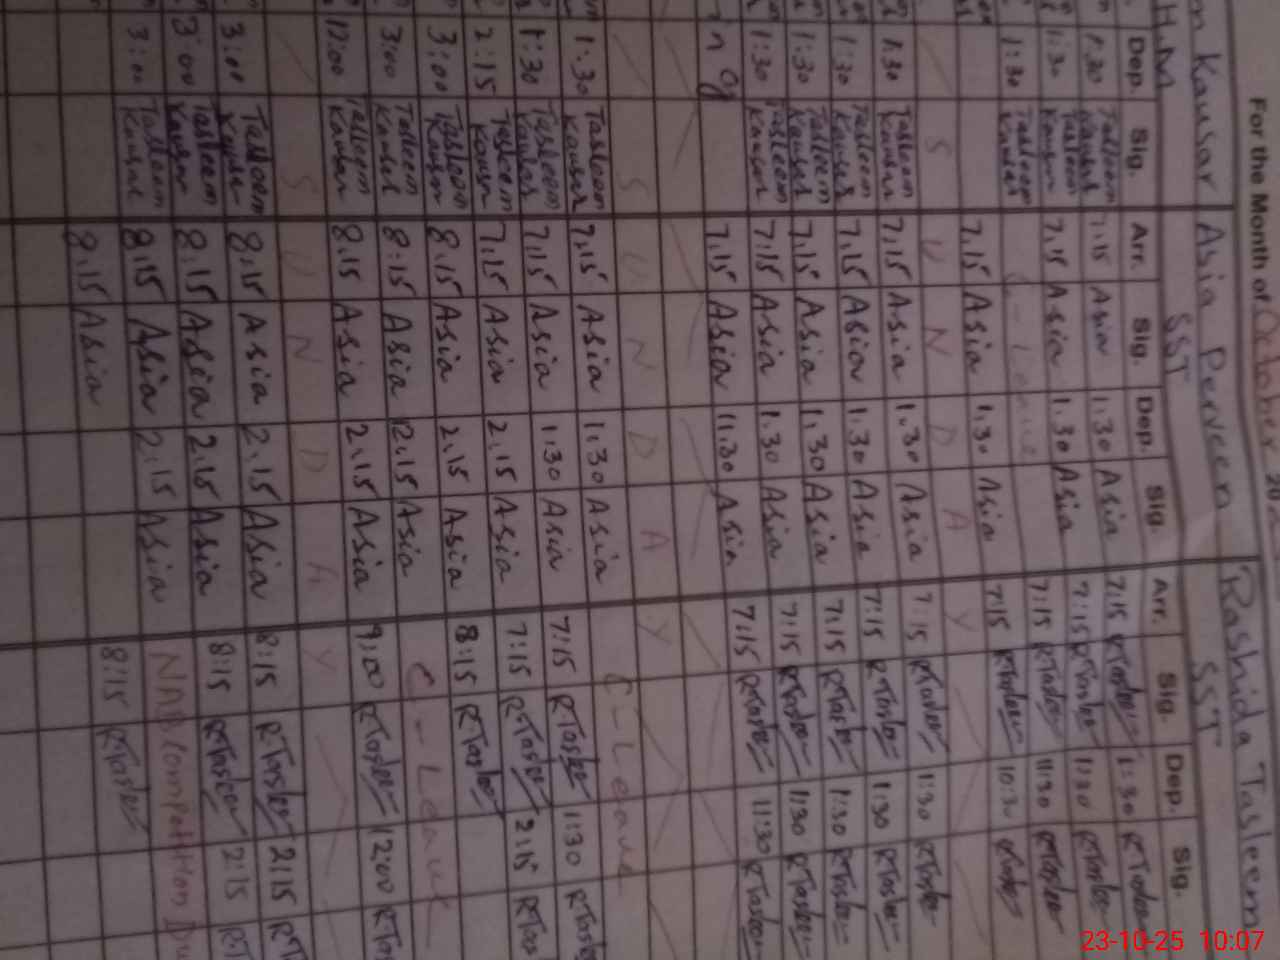 For the Month of October 20
n Kausar Asia Perveen Rashida Tasleem
H.M SST SST
Dep. Sig. Arr. Sig. Dep. Sig. Arr. Sig. Dep. Sig.
1:30 Tasleem Kausar 7:15 Asia 1:30 Asia 7:15 RTaslee 1:30 RTaslee
1:30 Tasleem Kausar 7.15 Asia 1.30 Asia 7:15 RTaslee 1:30 RTaslee
1:30 Tasleem Kausar C-Leave 7:15 RTaslee 11:30 RTaslee
7.15 Asia 1.30 Asia 7:15 RTaslee 10:30 RTaslee
S U N D A Y
1:30 Tasleem Kausar 7.15 Asia 1.30 Asia 7:15 RTaslee 1:30 RTaslee
1:30 Tasleem Kausar 7.15 Asia 1.30 Asia 7:15 RTaslee 1:30 RTaslee
1:30 Tasleem Kausar 7.15 Asia 1.30 Asia 7:15 RTaslee 1:30 RTaslee
1:30 Tasleem Kausar 7:15 Asia 1.30 Asia 7:15 RTaslee 1:30 RTaslee
7.15 Asia 11.30 Asia 7:15 RTaslee 11:30 RTaslee
S U N D A Y
1:30 Tasleem Kausar 7.15 Asia 1.30 Asia C-Leave
1:30 Tasleem Kausar 7:15 Asia 1:30 Asia 7:15 RTaslee 1:30 RTaslee
2:15 Tasleem Kausar 7:15 Asia 2.15 Asia 7:15 RTaslee 2:15 RTas
3:00 Tasleem Kausar 8.15 Asia 2.15 Asia 8:15 RTaslee
3:00 Tasleem Kausar 8:15 Asia 12.15 Asia C-Leave
12:00 Tasleem Kausar 8.15 Asia 2.15 Asia 9:00 RTaslee 12:00 RTas
S U N D A Y
3:00 Tasleem Kausar 8.15 Asia 2.15 Asia 8:15 RTaslee 2:15 RT
3:00 Tasleem Kausar 8:15 Asia 2.15 Asia 8:15 RTaslee 2:15 RT
3:00 Tasleem Kausar 8.15 Asia 2.15 Asia NAB Competition Du
8.15 Asia 8:15 RTaslee
23-10-25 10:07